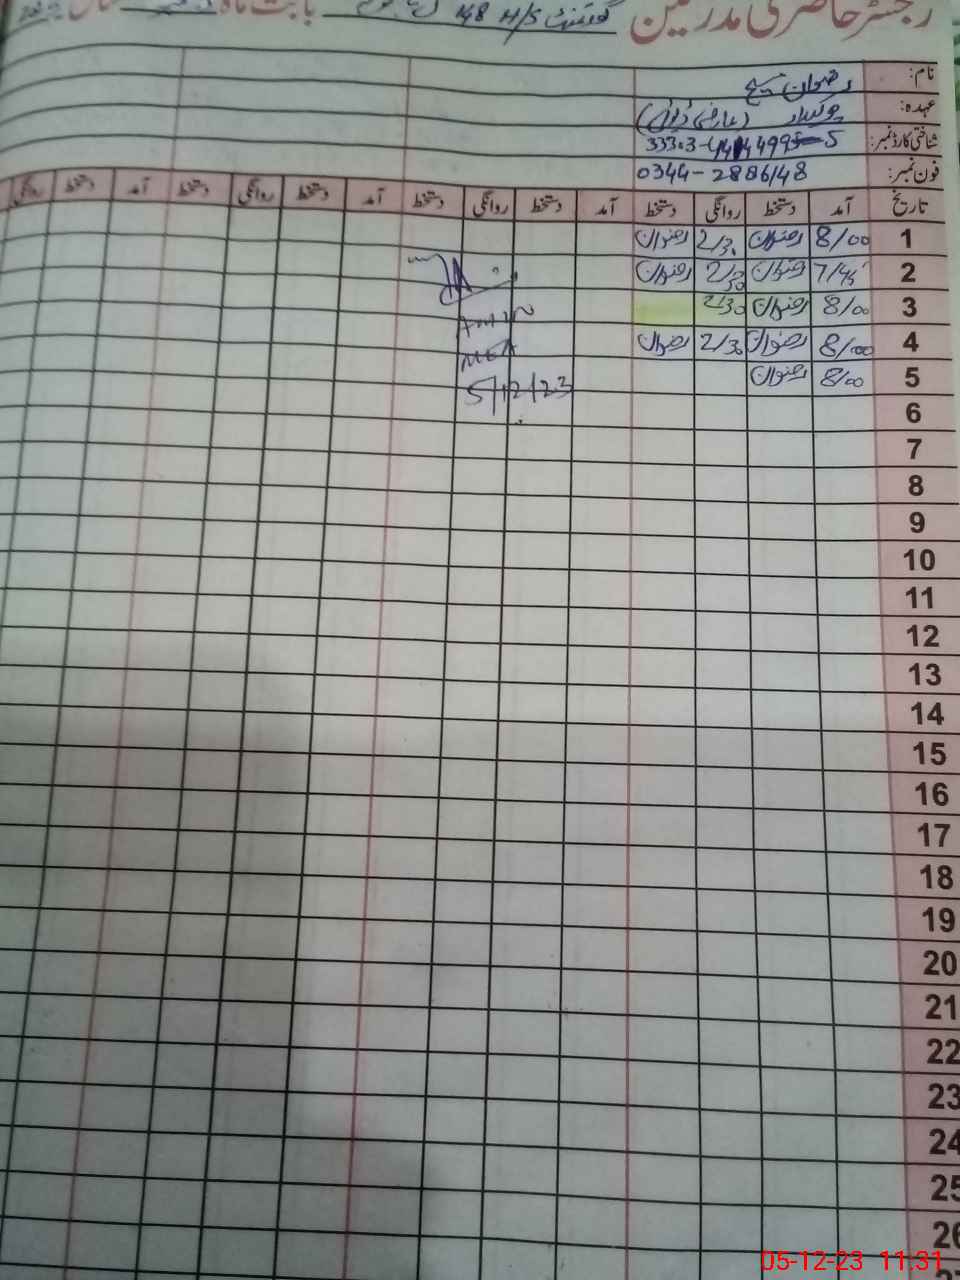 رجسٹر حاضری مدرسین گورنمنٹ 148 H/S بابت ماہ
نام: رضوان مسیح
عہدہ: چوکیدار (عارضی ڈیوٹی)
شناختی کارڈ نمبر:
فون نمبر: 0344-2886148
تاریخ آمد دستخط روانگی دستخط آمد دستخط روانگی دستخط آمد دستخط روانگی دستخط آمد دستخط روانگی
1 8/00 رضوان 2/30 رضوان
2 7/45 رضوان 2/30 رضوان
3 8/00 رضوان 2/30
4 8/00 رضوان 2/30 رضوان
5 8/00 رضوان
MEA
5/12/23
6
7
8
9
10
11
12
13
14
15
16
17
18
19
20
21
22
23
24
25
26
05-12-23 11:31